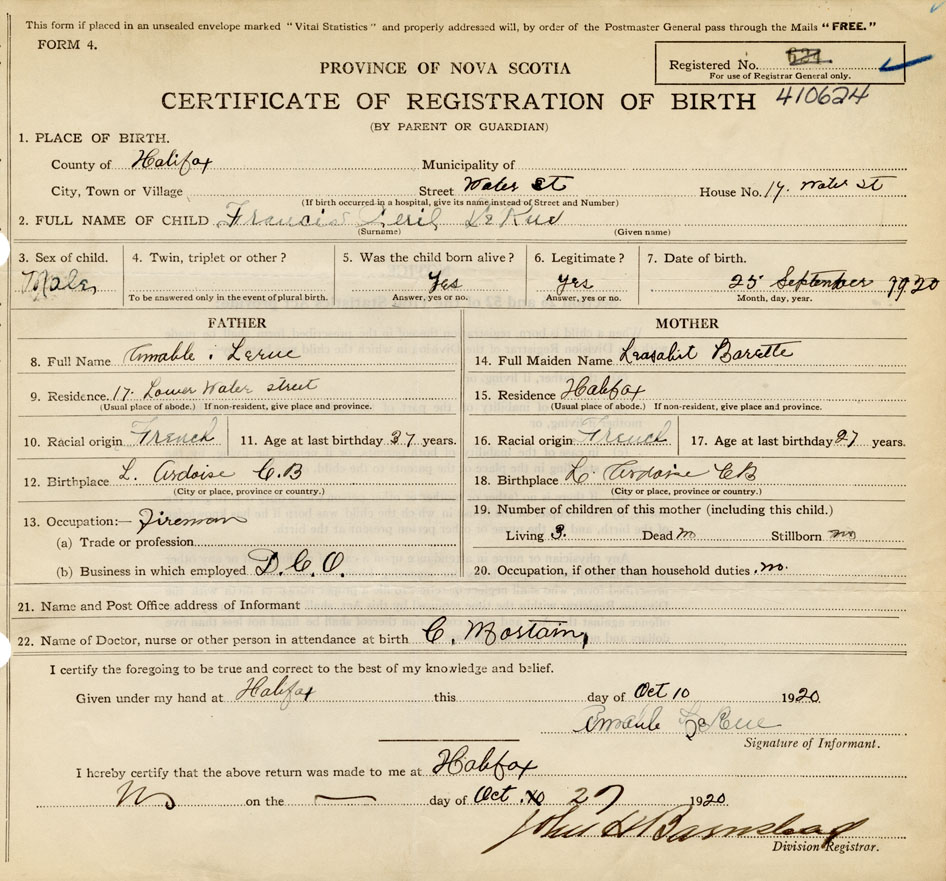 This form if placed in an unsealed envelope marked "Vital Statistics" and properly addressed will, by order of the Postmaster General pass through the Mails "FREE."
FORM 4.
Registered No. 624
For use of Registrar General only.
PROVINCE OF NOVA SCOTIA
CERTIFICATE OF REGISTRATION OF BIRTH 410624
(BY PARENT OR GUARDIAN)
1. PLACE OF BIRTH.
County of Halifax Municipality of
City, Town or Village Street Water St House No. 17. Water St
(If birth occurred in a hospital, give its name instead of Street and Number)
2. FULL NAME OF CHILD Francis LeRue
(Surname) (Given name)
3. Sex of child. 4. Twin, triplet or other? 5. Was the child born alive? 6. Legitimate? 7. Date of birth.
Male Yes Yes 25 September 1920
To be answered only in the event of plural birth. Answer, yes or no. Answer, yes or no. Month, day, year.
FATHER MOTHER
8. Full Name Amable Lerue 14. Full Maiden Name Barette
9. Residence. 17. Lower Water street 15. Residence Halifax
(Usual place of abode.) If non-resident, give place and province. (Usual place of abode.) If non-resident, give place and province.
10. Racial origin French 11. Age at last birthday 37 years. 16. Racial origin French 17. Age at last birthday 27 years.
12. Birthplace L. Ardoise C.B 18. Birthplace L. Ardoise CB
(City or place, province or country.) (City or place, province or country.)
13. Occupation:— Fireman 19. Number of children of this mother (including this child.)
(a) Trade or profession Living 3. Dead no Stillborn no
(b) Business in which employed D.C.O. 20. Occupation, if other than household duties. no.
21. Name and Post Office address of Informant
22. Name of Doctor, nurse or other person in attendance at birth C. Mostain
I certify the foregoing to be true and correct to the best of my knowledge and belief.
Given under my hand at Halifax this day of Oct 10 1920
Amable LeRue
Signature of Informant.
I hereby certify that the above return was made to me at Halifax
on the — day of Oct. 27 1920
John Barnstead
Division Registrar.